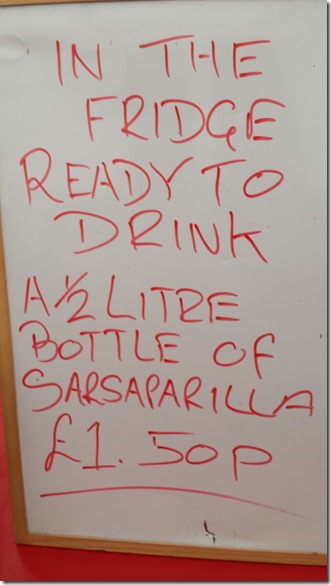 IN THE
FRIDGE
READY TO
DRINK
A ½ LITRE
BOTTLE OF
SARSAPARILLA
£1.50p